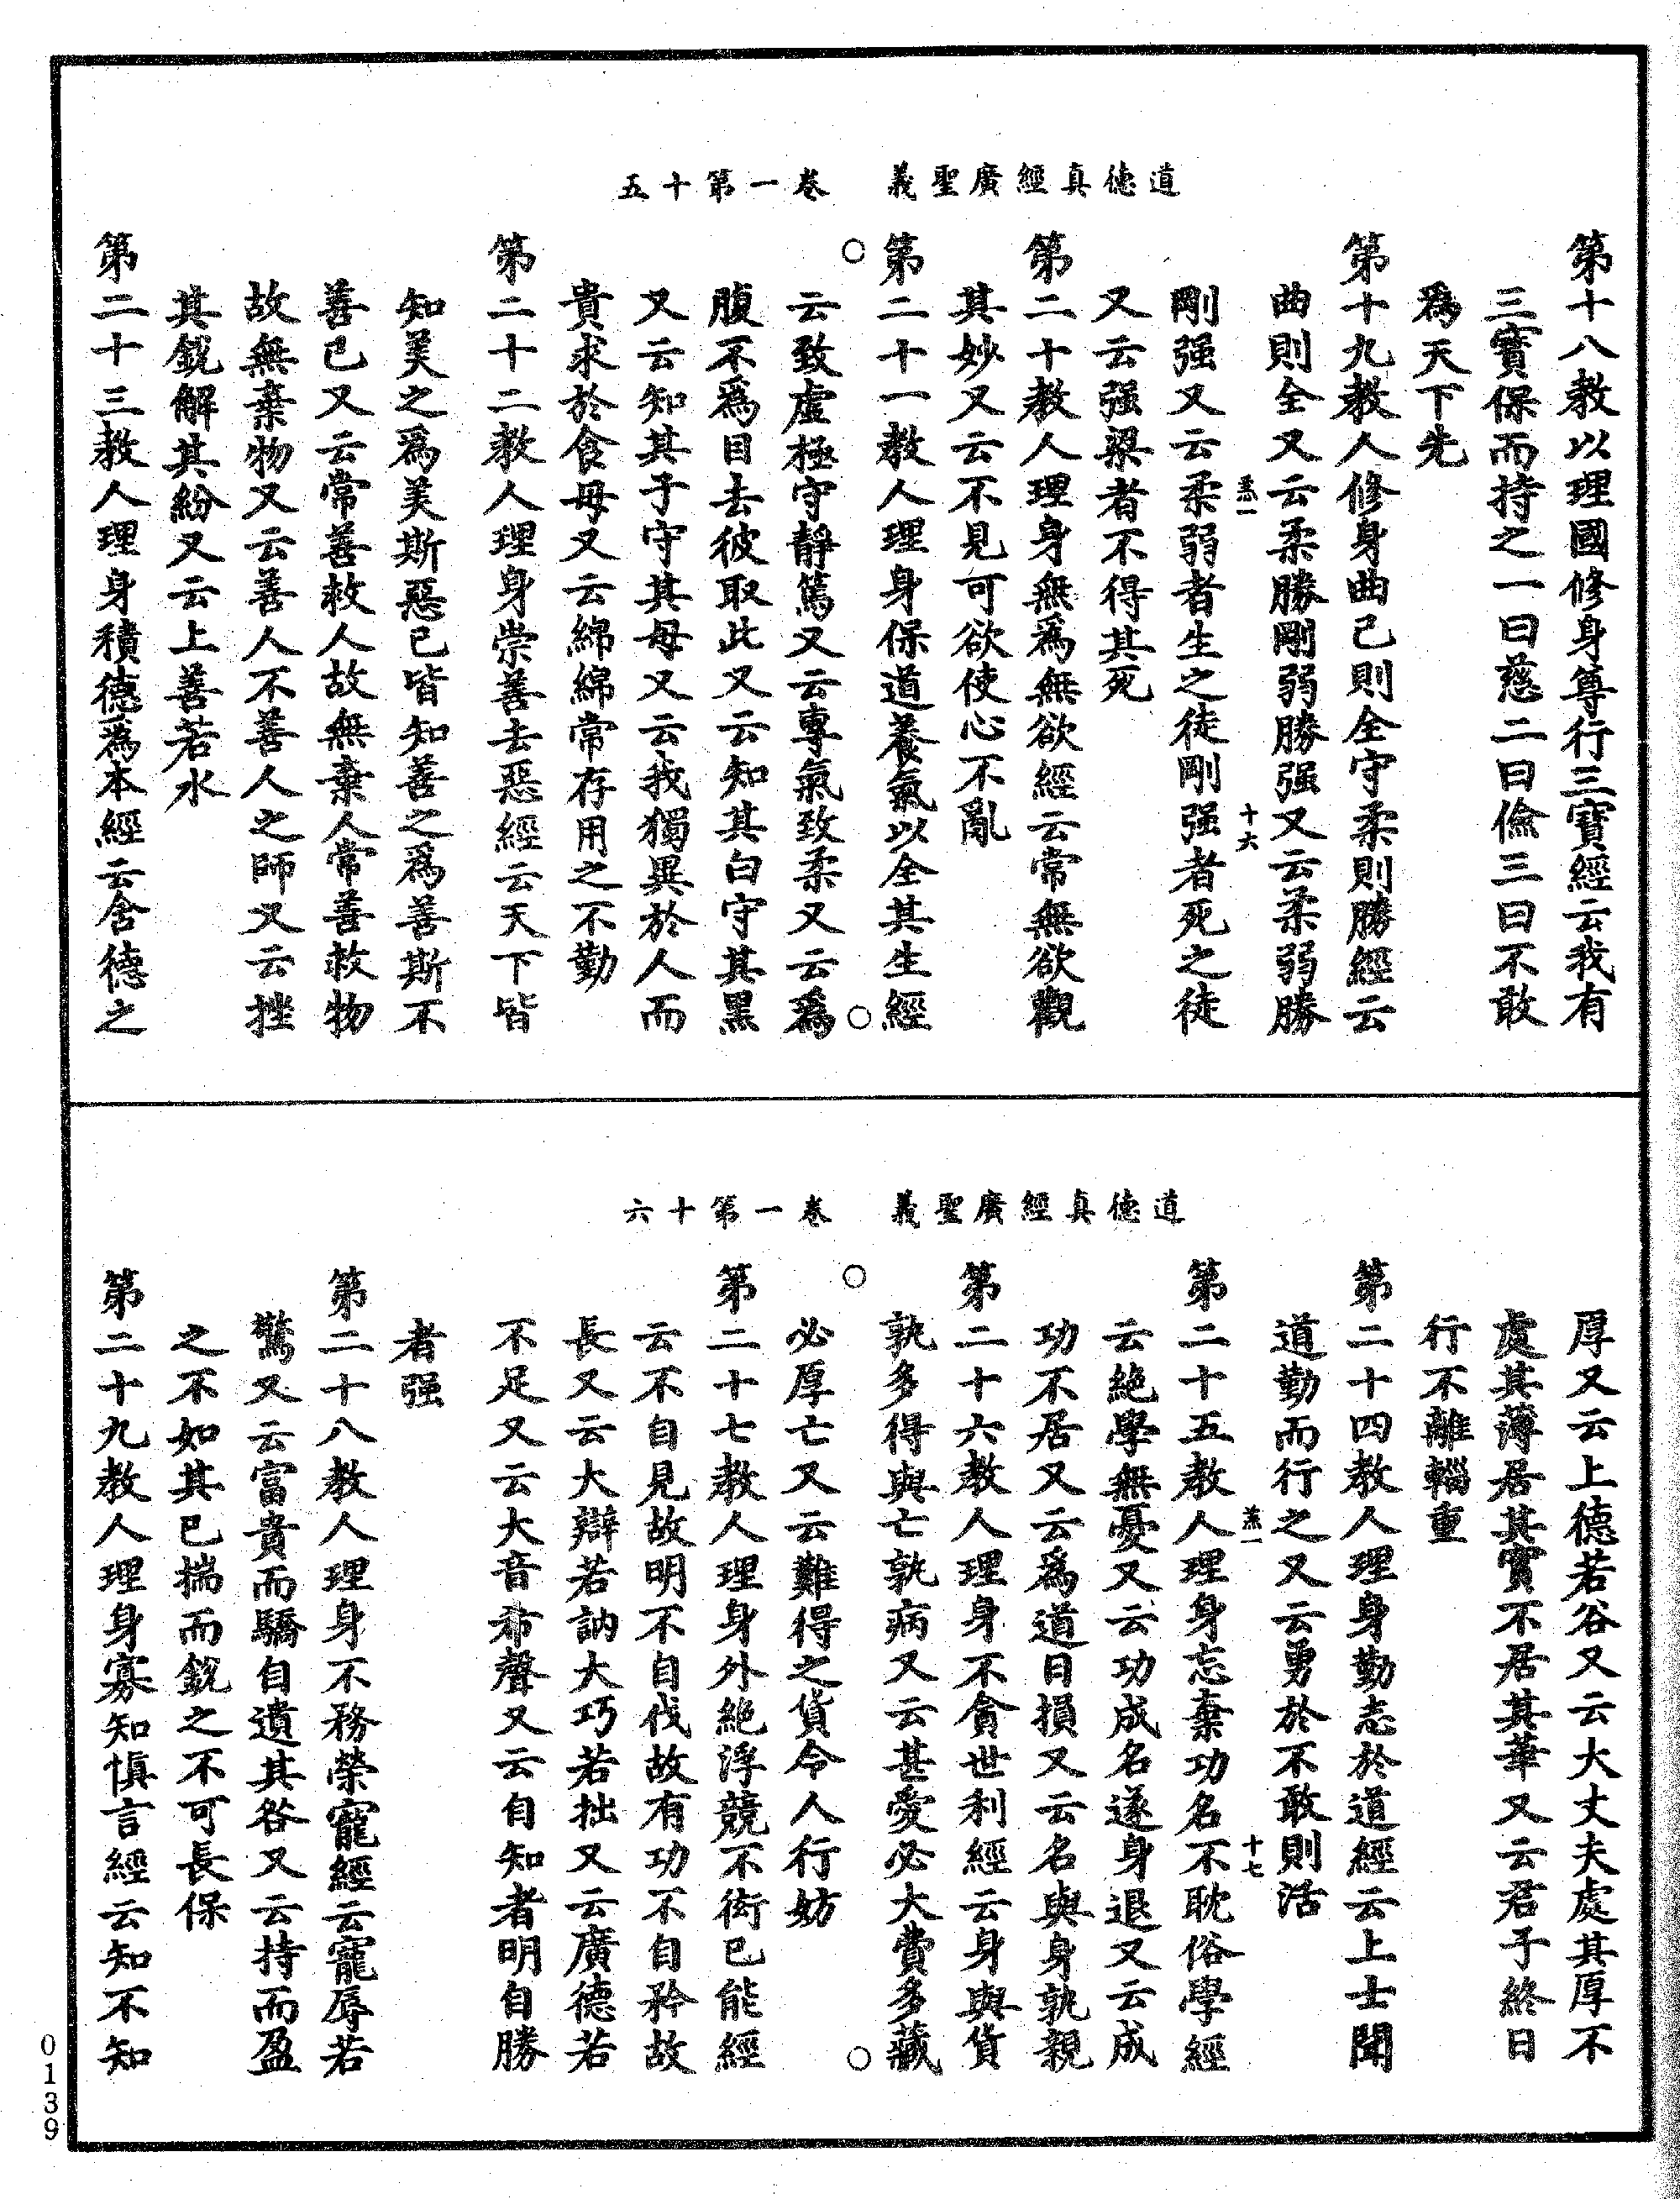 道德真經廣聖義　卷一第十五
第十八教以理國修身尊行三寶經云我有
三寶保而持之一曰慈二曰儉三曰不敢
為天下先
第十九教人修身曲己則全守柔則勝經云
曲則全又云柔勝剛弱勝强又云柔弱勝
羔一　十六
剛强又云柔弱者生之徒剛强者死之徒
又云强梁者不得其死
第二十教人理身無為無欲經云常無欲觀
其妙又云不見可欲使心不亂
第二十一教人理身保道養氣以全其生經
云致虛極守靜篤又云專氣致柔又云為
腹不為目去彼取此又云知其白守其黑
又云知其子守其母又云我獨異於人而
貴求於食母又云綿綿常存用之不勤
第二十二教人理身崇善去惡經云天下皆
知美之為美斯惡已皆知善之為善斯不
善已又云常善救人故無棄人常善救物
故無棄物又云善人不善人之師又云挫
其銳解其紛又云上善若水
第二十三教人理身積德為本經云含德之
道德真經廣聖義　卷一第十六
厚又云上德若谷又云大丈夫處其厚不
處其薄居其實不居其華又云君子終日
行不離輜重
第二十四教人理身勤志於道經云上士聞
道勤而行之又云勇於不敢則活
羔一　十七
第二十五教人理身忘棄功名不耽俗學經
云絕學無憂又云功成名遂身退又云成
功不居又云為道日損又云名與身孰親
第二十六教人理身不貪世利經云身與貨
孰多得與亡孰病又云甚愛必大費多藏
必厚亡又云難得之貨令人行妨
第二十七教人理身外絕浮競不衒已能經
云不自見故明不自伐故有功不自矜故
長又云大辯若訥大巧若拙又云廣德若
不足又云大音希聲又云自知者明自勝
者强
第二十八教人理身不務榮寵經云寵辱若
驚又云富貴而驕自遺其咎又云持而盈
之不如其已揣而銳之不可長保
第二十九教人理身寡知慎言經云知不知
0139